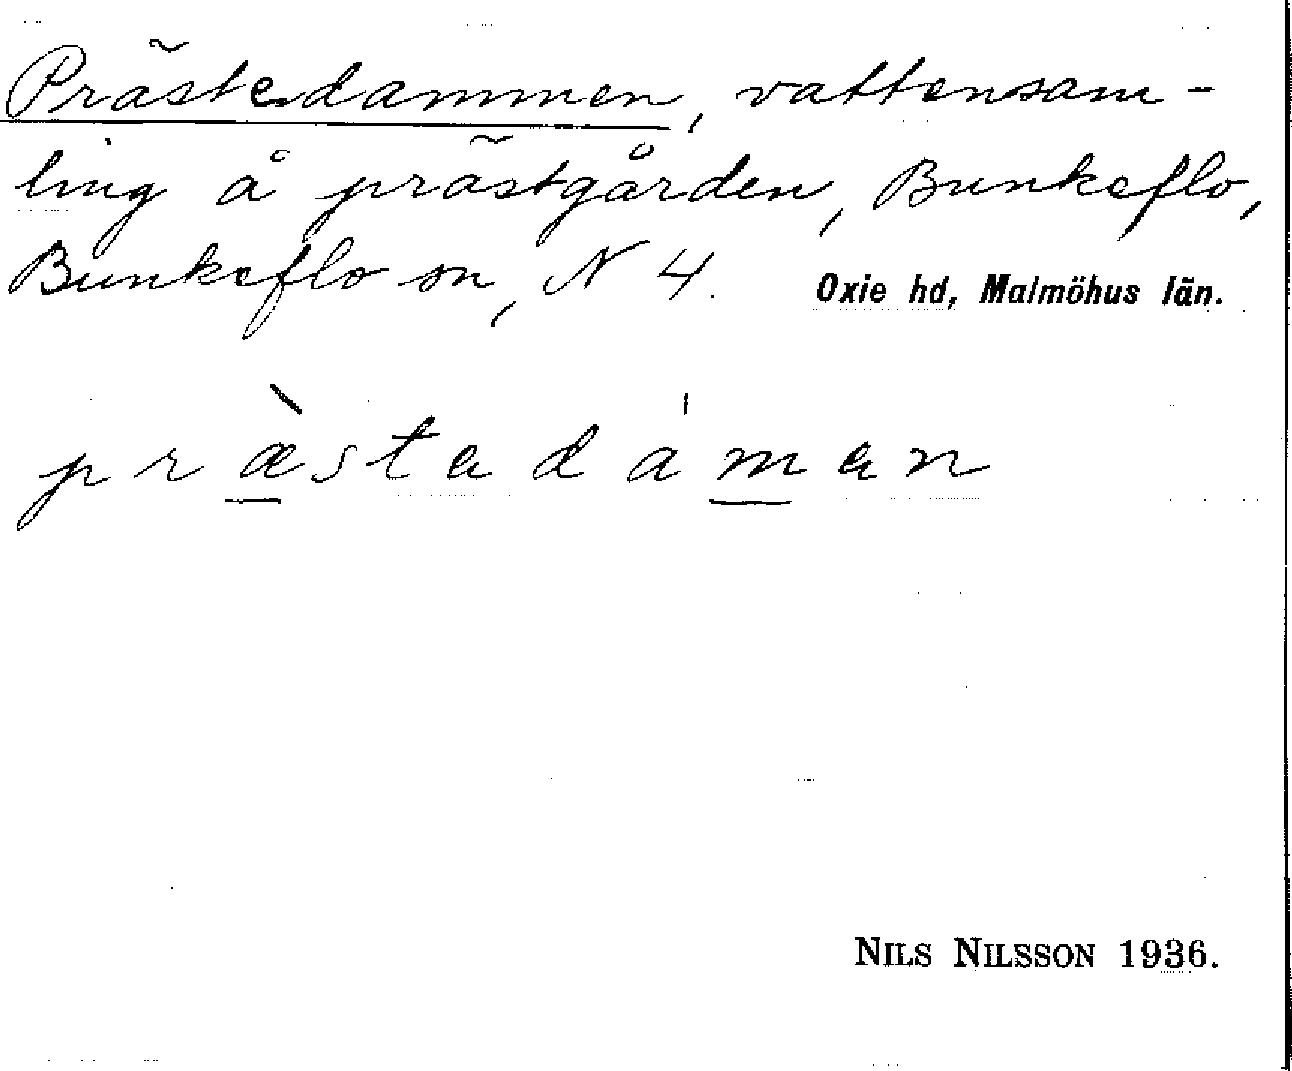 Prästedammen, vattensam-
ling å prästgården, Bunkeflo,
Bunkeflo sn, N 4. Oxie hd, Malmöhus län.
præ̀stadáman
NILS NILSSON 1936.